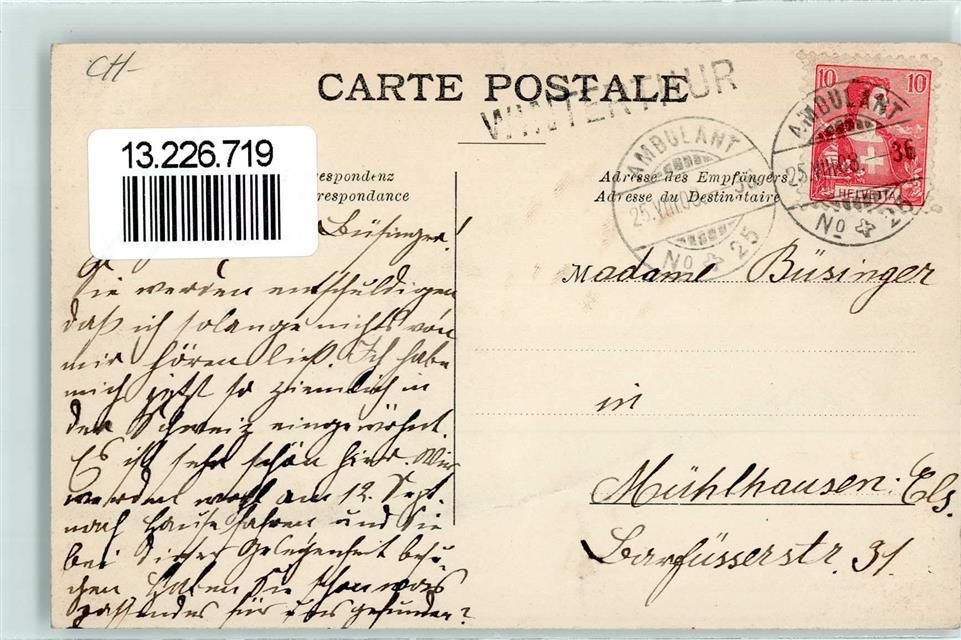 CH-
CARTE POSTALE
WINTERTHUR
10 10
HELVETIA
AMBULANT
25.VIII.08. 36
No 25
AMBULANT
25.VIII.08. 36
No 25
13.226.719
respondenz
respondance
Adresse des Empfängers
Adresse du Destinataire
Büsinger!
Sie werden entschuldigen
daß ich solange nichts von
mir hören ließ. Ich habe
mich jetzt so ziemlich in
der Schweiz eingewöhnt.
Es ist sehr schön hier. Wir
werden wohl am 12. Sept.
nach Hause fahren und Sie
bei dieser Gelegenheit besu-
chen. Haben Sie schon was
passendes für uns gefunden?
Madame Büsinger
in
Mühlhausen. Els.
Barfüsserstr. 31.